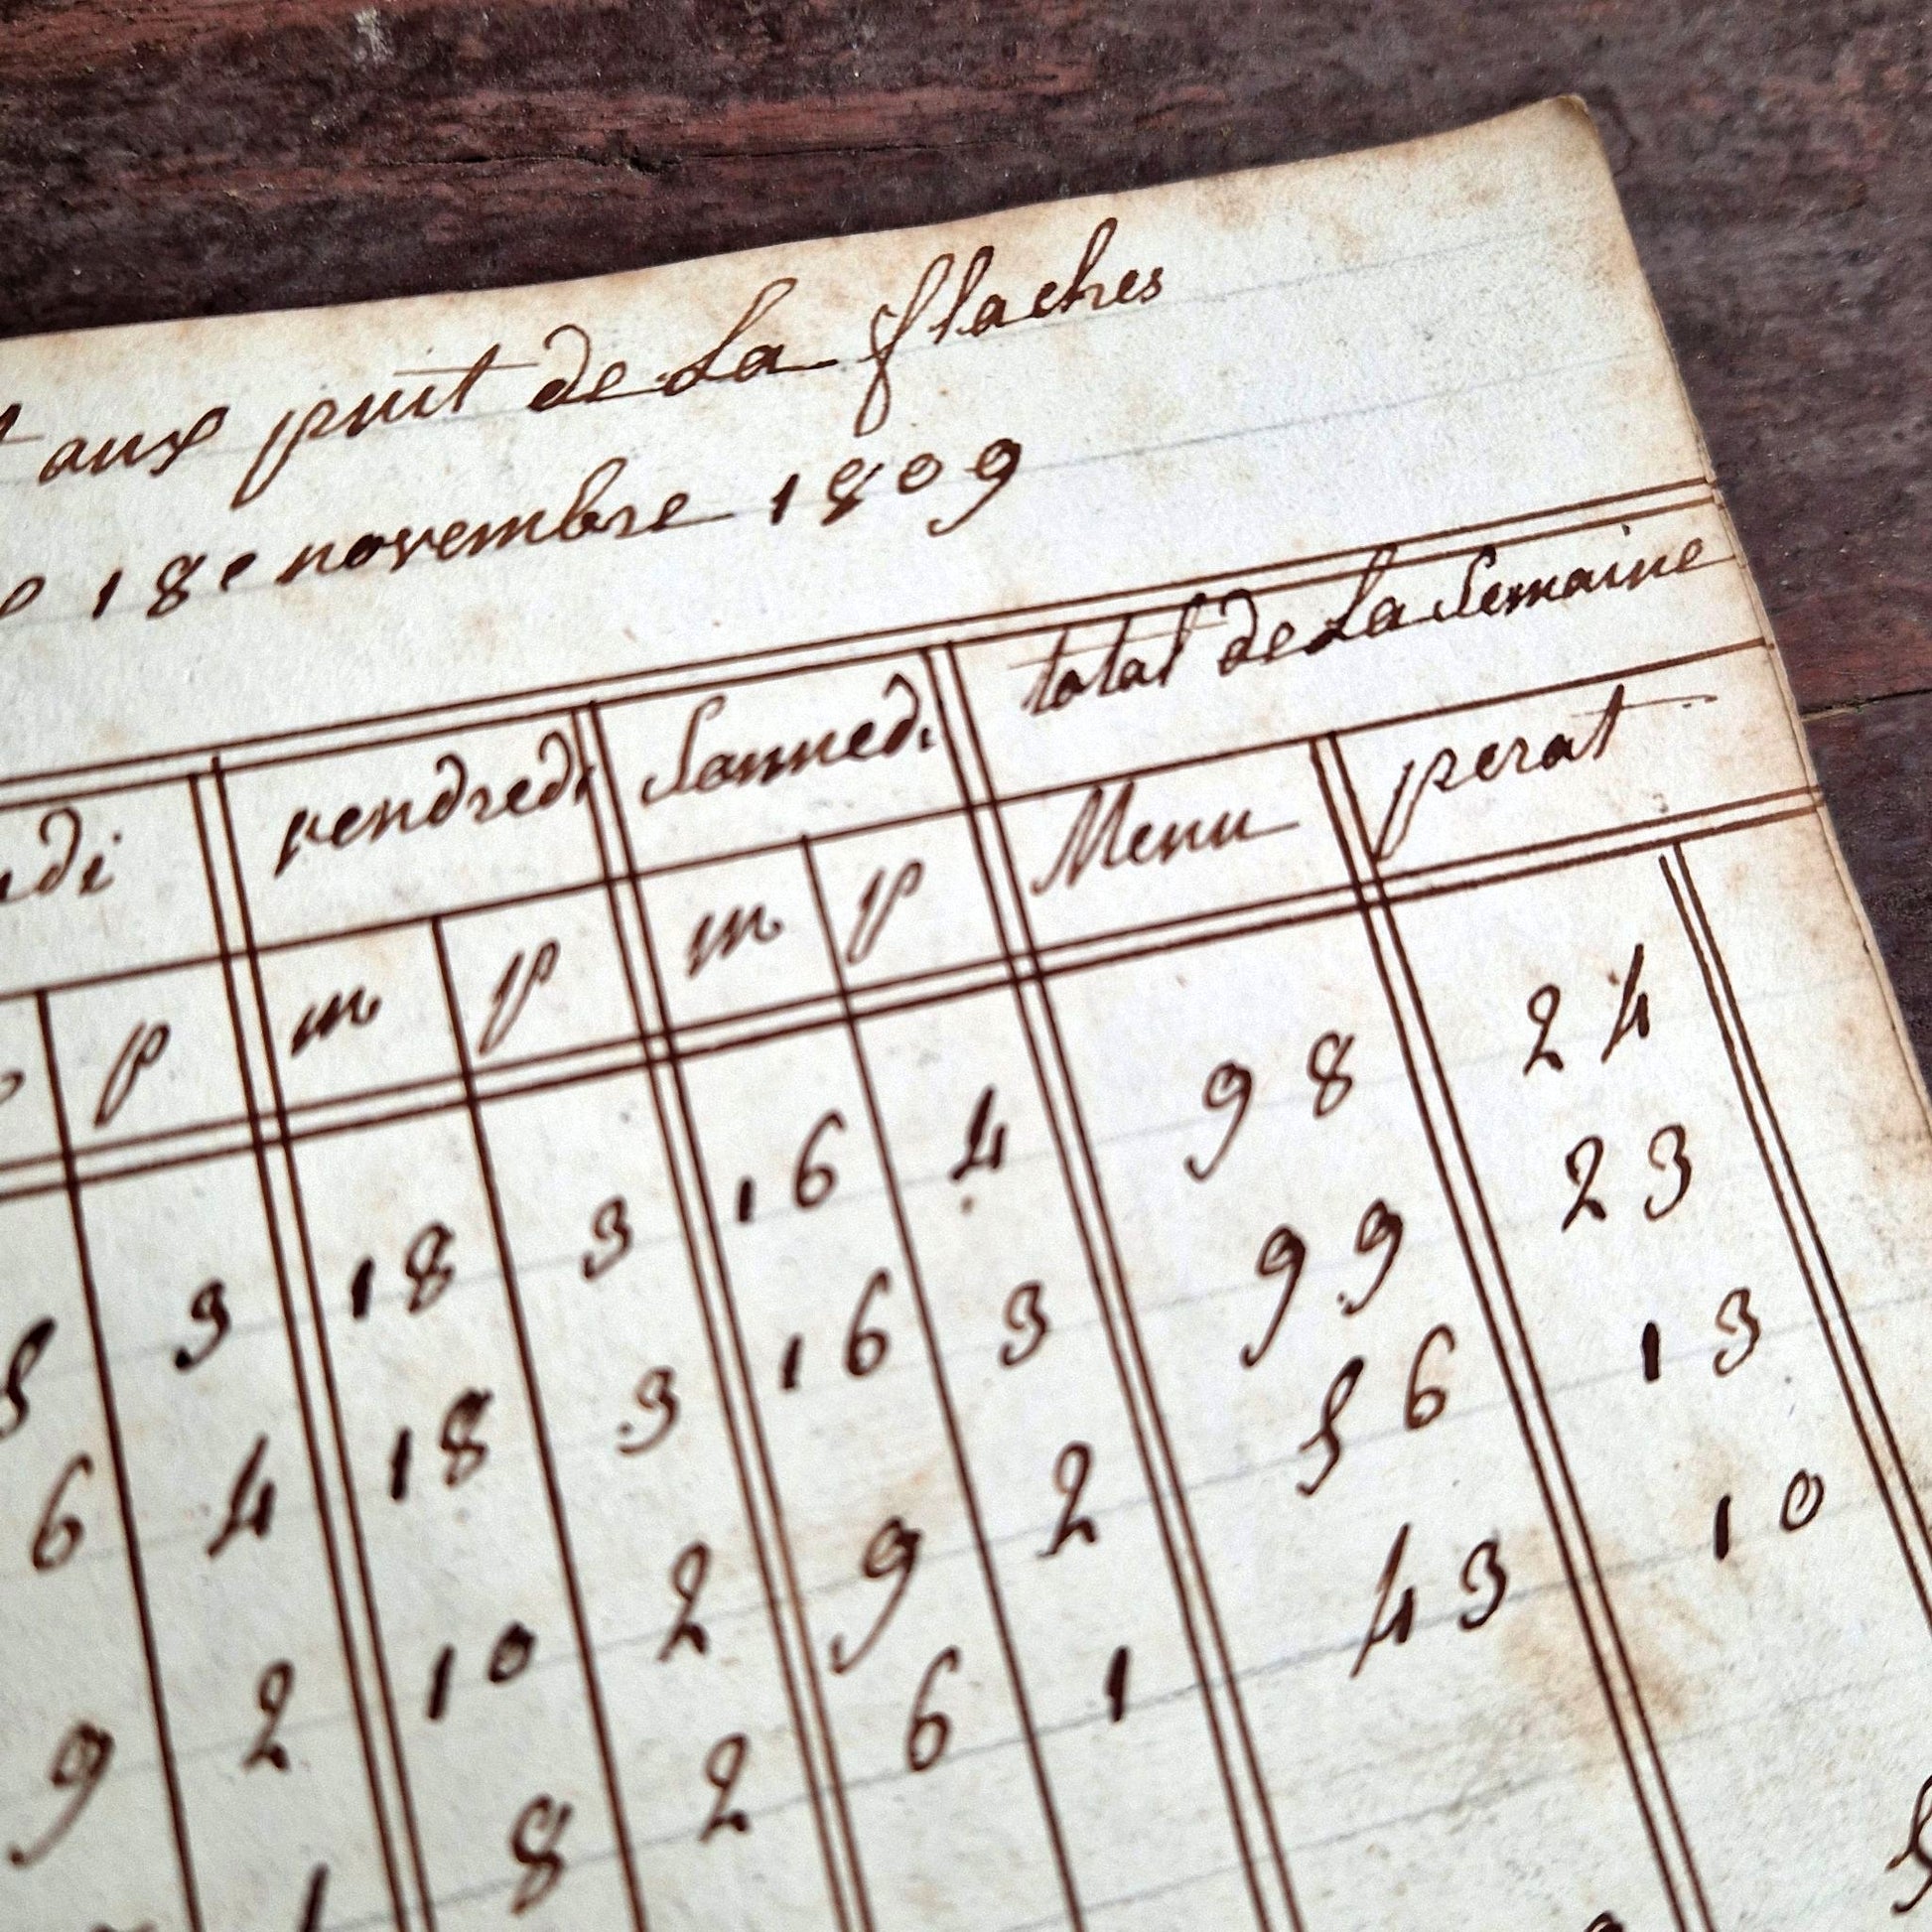 aux puit de La flaches
18e novembre 1809
di vendredi Sammedi total de La Semaine
p m p m p Menu perat
3 18 3 16 4 98 24
6 4 18 3 16 3 99 23
9 2 10 2 9 2 56 13
8 2 6 1 43 10